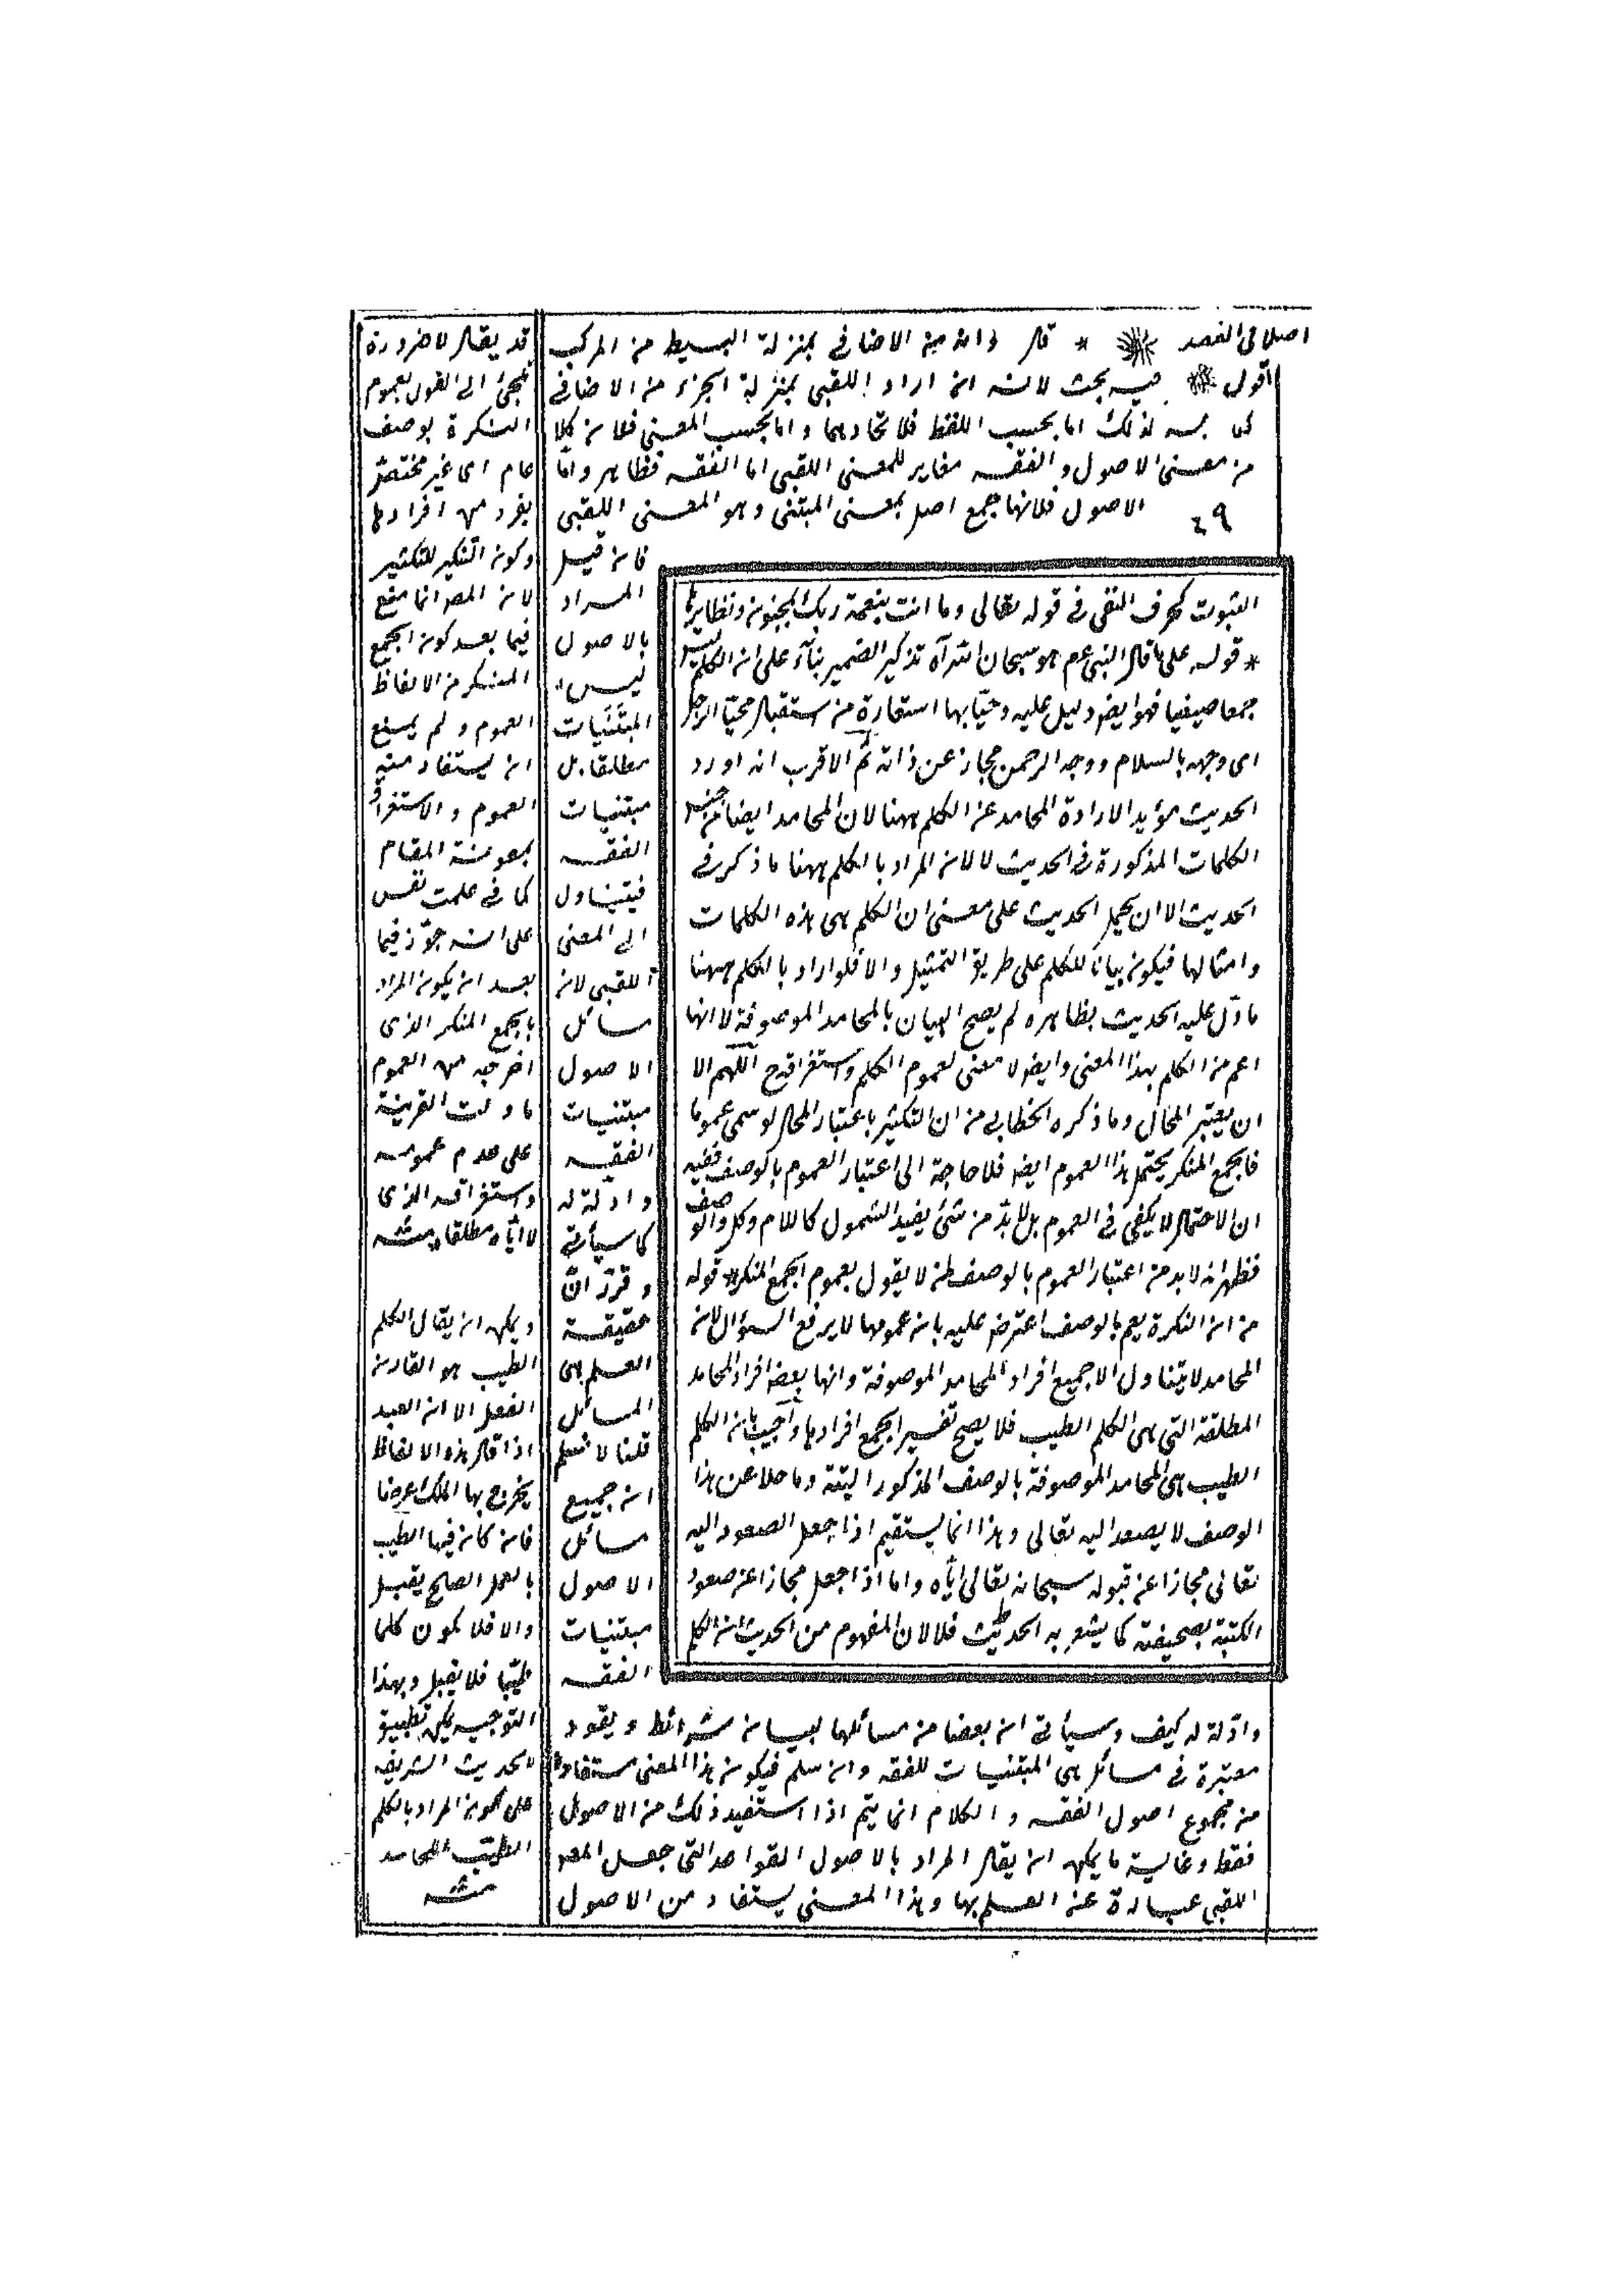 اصلا فى القصد * قال و انه من الاضافى بمنزلة البسيط من المركب
اقول فيه بحث لانه ان اراد اللقبى بمنزلة الجزء من الاضافى
لذلك اما بحسب اللفظ فلاتحادهما و اما بحسب المعنى فلان كلا
من معنى الاصول و الفقه مغاير للمعنى اللقبى اما الفقه فظاهر و اما
الاصول فلانها جمع اصل بمعنى المبتنى و هو المعنى اللقبى
٤٩
فان قيل
المراد
بالاصول
ليس
المبتنيات
مطلقا بل
مبتنيات
الفقه
فيتناول
الى المعنى
اللقبى لان
مسائل
الاصول
مبتنيات
الفقه
و ادلة له
كما سيأتى
و قرر ان
حقيقة
العلم هى
المسائل
قلنا لا نسلم
ان جميع
مسائل
الاصول
مبتنيات
الفقه
و ادلة له كيف و سيأتى ان بعضا من مسائلها لبيان شرائط و يقود
معتبرة فى مسائل هى المبتنيات للفقه و ان سلم فيكون هذا المعنى مستفادا
من مجموع اصول الفقه و الكلام انما يتم اذا استفيد ذلك من الاصول
فقط و غاية ما يمكن ان يقال المراد بالاصول القواعد التى جعل المص
اللقبى عبارة عن العلم بها و هذا المعنى يستفاد من الاصول
الثبوت كحرف النفى فى قوله تعالى و ما انت بنعمة ربك بمجنون و نظايرها
* قوله على ما قال النبى عم هو سبحان الله آه تذكير الضمير بناء على ان الكلم ليس
جمعا صيغيا فهو ايض دليل عليه و حيّا بها استعارة من استقبال محيّا الرجل
اى وجهه بالسلام و وجه الرحمن مجاز عن ذاته ثم الاقرب انه اورد
الحديث مؤيد الارادة المحامد عن الكلم ههنا لان المحامد ايضا من جنس
الكلمات المذكورة فى الحديث لا لان المراد بالكلم ههنا ما ذكر فى
الحديث الا ان يحمل الحديث على معنى ان الكلم هى هذه الكلمات
و امثالها فيكون بيانا للكلم على طريق التمثيل و الا فلو اراد بالكلم ههنا
ما دل عليه الحديث بظاهره لم يصح البيان بالمحامد الموصوفة لانها
اعم من الكلم بهذا المعنى و ايض لا معنى لعموم الكلم و استغراقه ح اللهم الا
ان يعتبر المحال و ما ذكره الخطابى من ان التكثير باعتبار المحال لو سمى عموما
فالجمع المنكر يحتمل هذا العموم ايض فلا حاجة الى اعتبار العموم بالوصف ففيه
ان الاحتمال لا يكفى فى العموم بل لا بد من شئ يفيد الشمول كاللام و كل و الوصف
فظهر انه لا بد من اعتبار العموم بالوصف لمن لا يقول بعموم الجمع المنكر * قوله
من ان النكرة يعم بالوصف اعترض عليه بان عمومها لا يرفع السؤال لان
المحامد لا يتناول الا جميع افراد المحامد الموصوفة و انها بعض افراد المحامد
المطلقة التى هى الكلم الطيب فلا يصح تفسير الجمع افرادها و اجيب بان الكلم
الطيب هى المحامد الموصوفة بالوصف المذكور البتة و ما خلا عن هذا
الوصف لا يصعد اليه تعالى و هذا انما يستقيم اذا جعل الصعود اليه
تعالى مجازا عن قبوله سبحانه تعالى اياه و اما اذا جعل مجازا عن صعود
الكتبة بصحيفته كما يشعر به الحديث فلا لان المفهوم من الحديث ان الكلم
قد يقال لا ضرورة
تلجئ الى القول بعموم
النكرة بوصف
عام اى غير مختص
بفرد من افرادها
و كون التنكير للتكثير
لان المص انما منع
فيما بعد كون الجمع
المنكر من الالفاظ
العموم و لم يمنع
ان يستفاد منه
العموم و الاستغراق
بمعونة المقام
كما فى علمت نفس
على انه جوّز فيما
بعد ان يكون المراد
بالجمع المنكر الذى
اخرجه من العموم
ما دلت القرينة
على عدم عمومه
و استغراقه الذى
لا اياه مطلقا منه
و يمكن ان يقال الكلم
الطيب هو القارن
الفعل الا ان العبد
اذا قال هذه الالفاظ
يخرج بها الملك عرضا
فان كان فيها الطيب
بالعمل الصالح يقبل
و الا فلا يكون كلما
طيبا فلا يقبل و بهذا
التوجيه يمكن تطبيق
الحديث الشريف
على كون المراد بالكلم
الطيب المحامد
منه